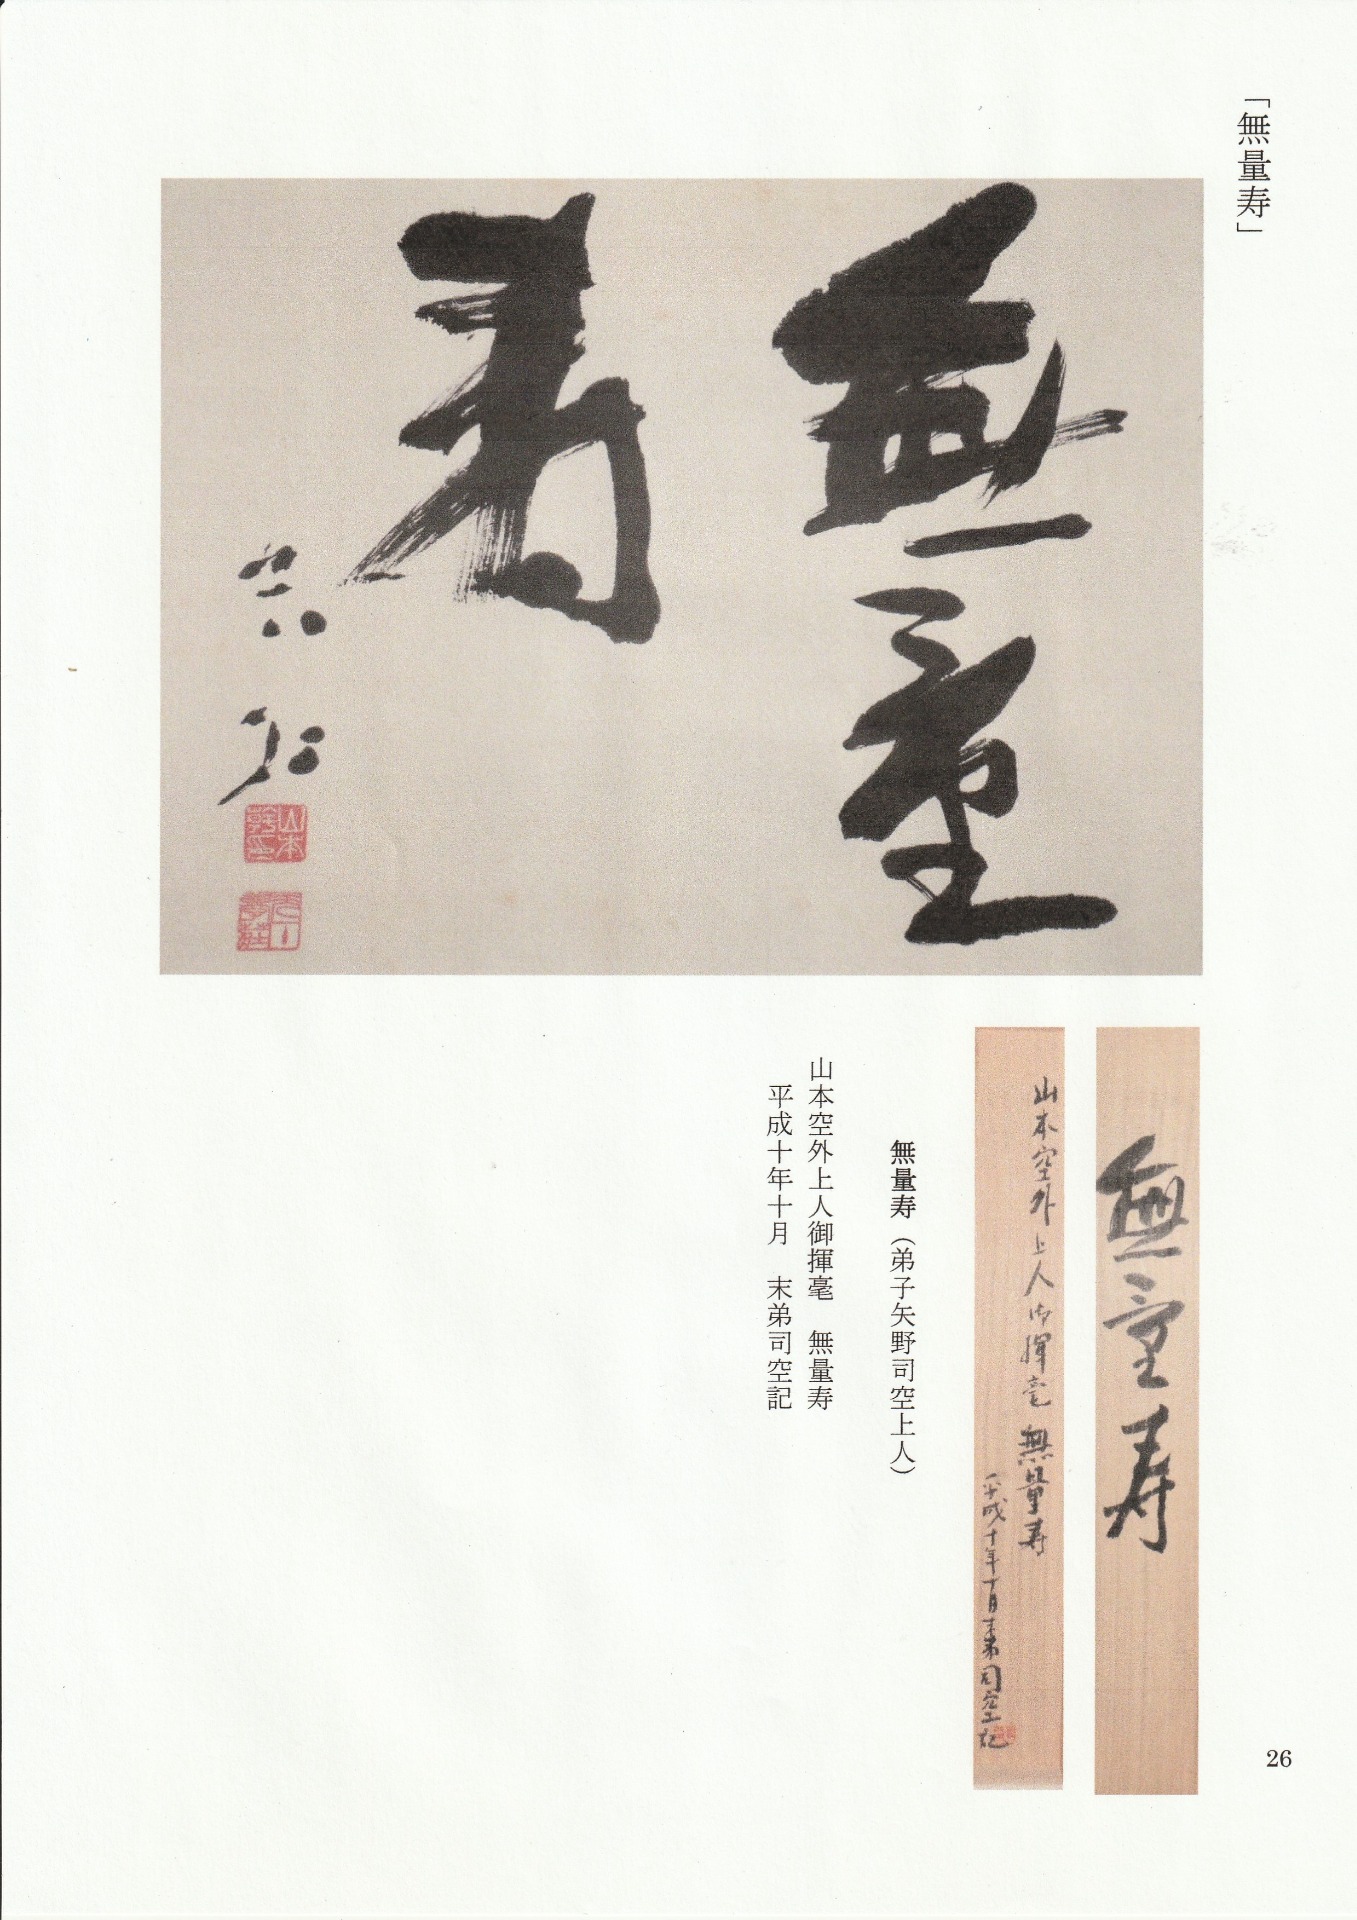 「無量寿」
無量
寿
空外
山本
幹印
無量寿
山本空外上人御揮毫 無量寿
平成十年十月末弟司空記
無量寿(弟子矢野司空上人)
山本空外上人御揮毫 無量寿
平成十年十月 末弟司空記
26